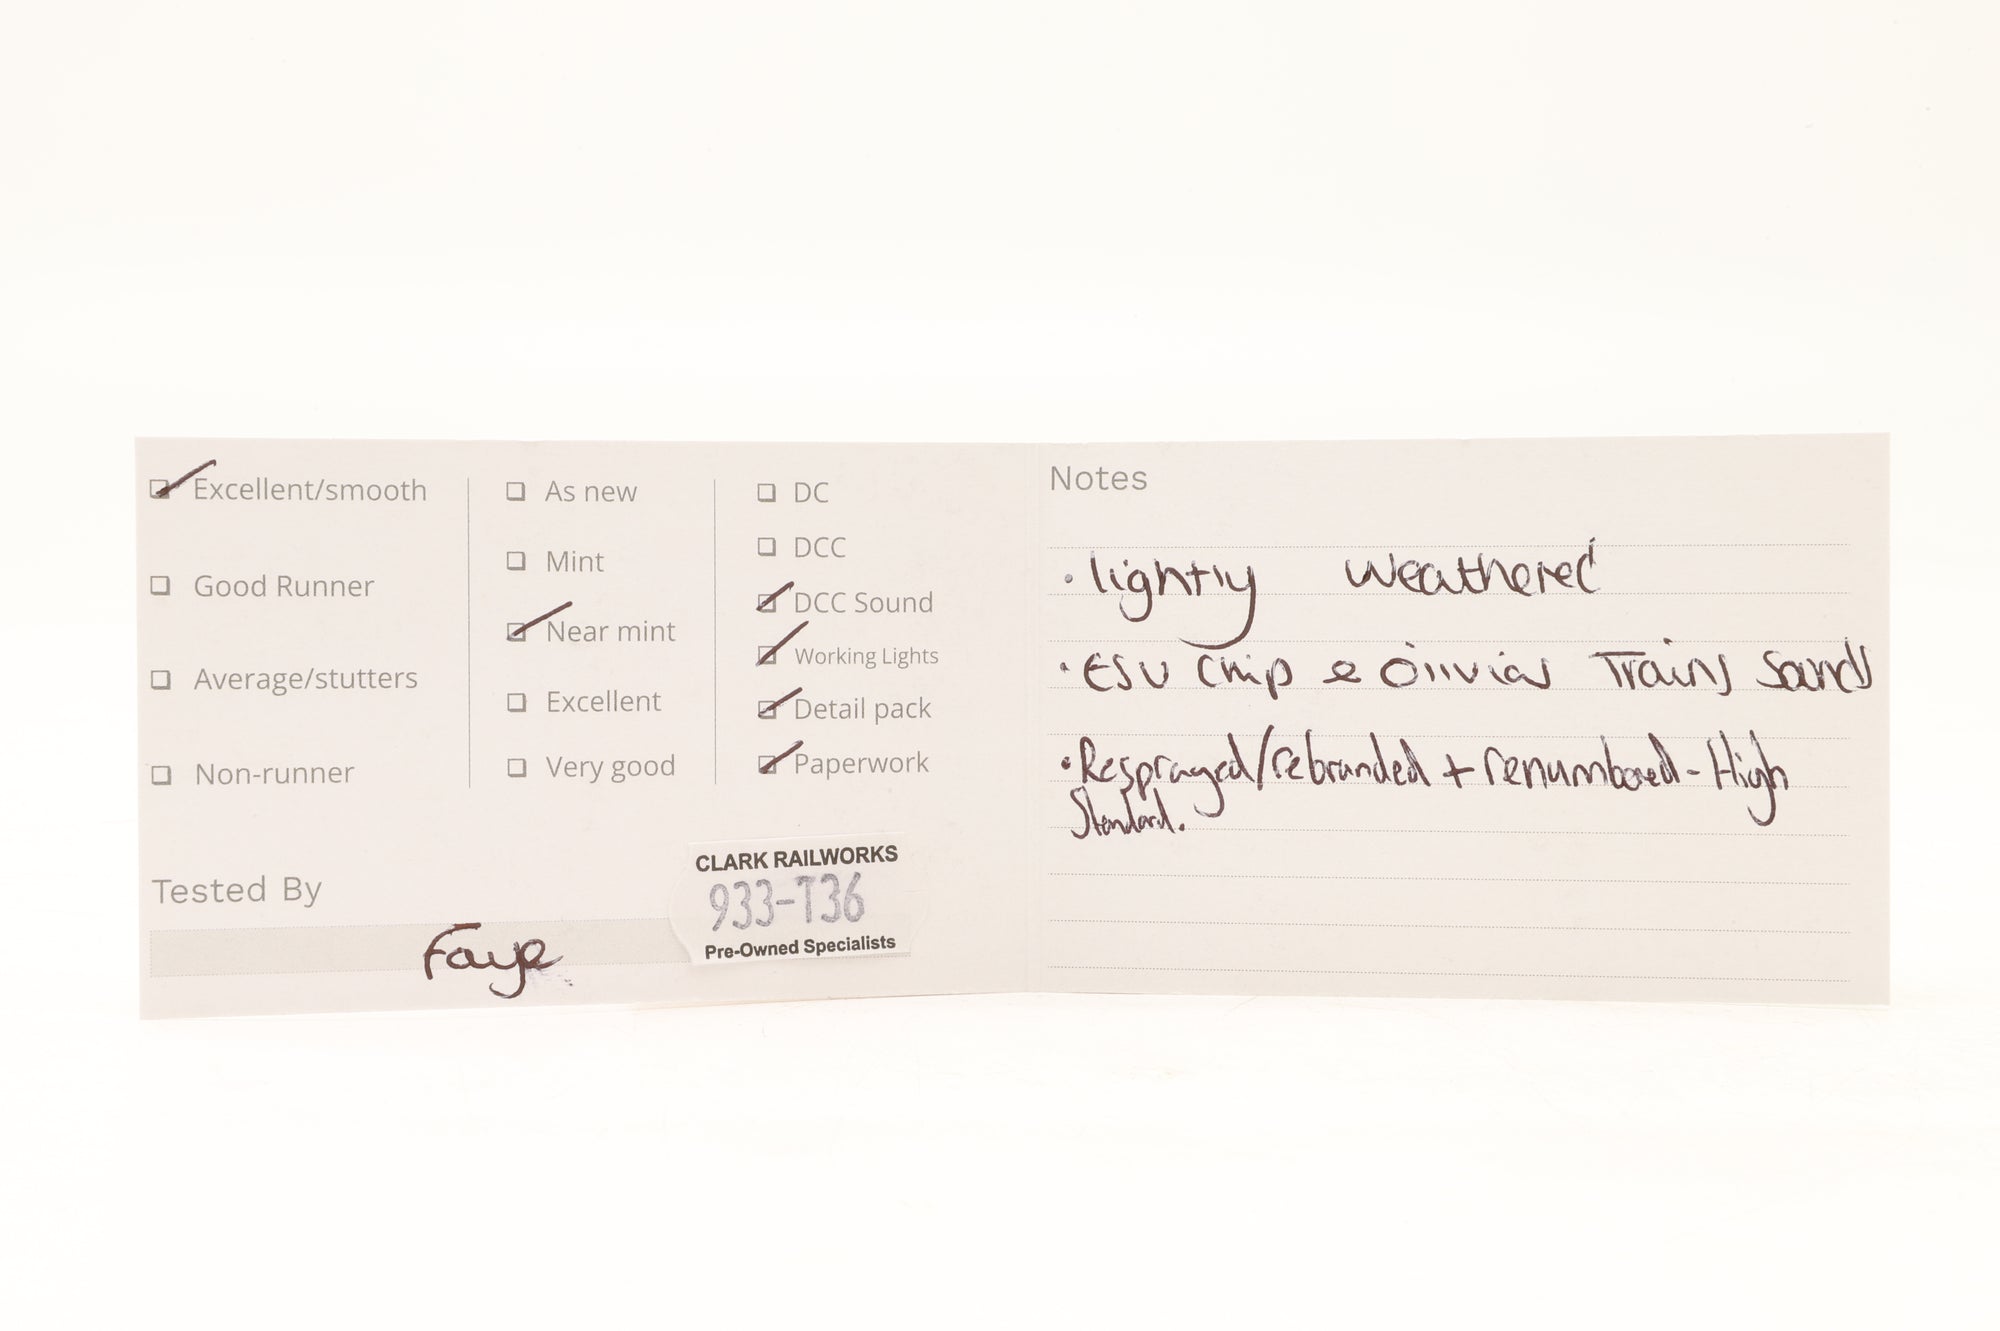 Excellent/smooth
Good Runner
Average/stutters
Non-runner
As new
Mint
Near mint
Excellent
Very good
DC
DCC
DCC Sound
Working Lights
Detail pack
Paperwork
Tested By
Faye
CLARK RAILWORKS
933-T36
Pre-Owned Specialists
Notes
• lightly weathered
• ESU Chip & Olivias Trains Sounds
• Resprayed/rebranded + renumbered - High
Standard.